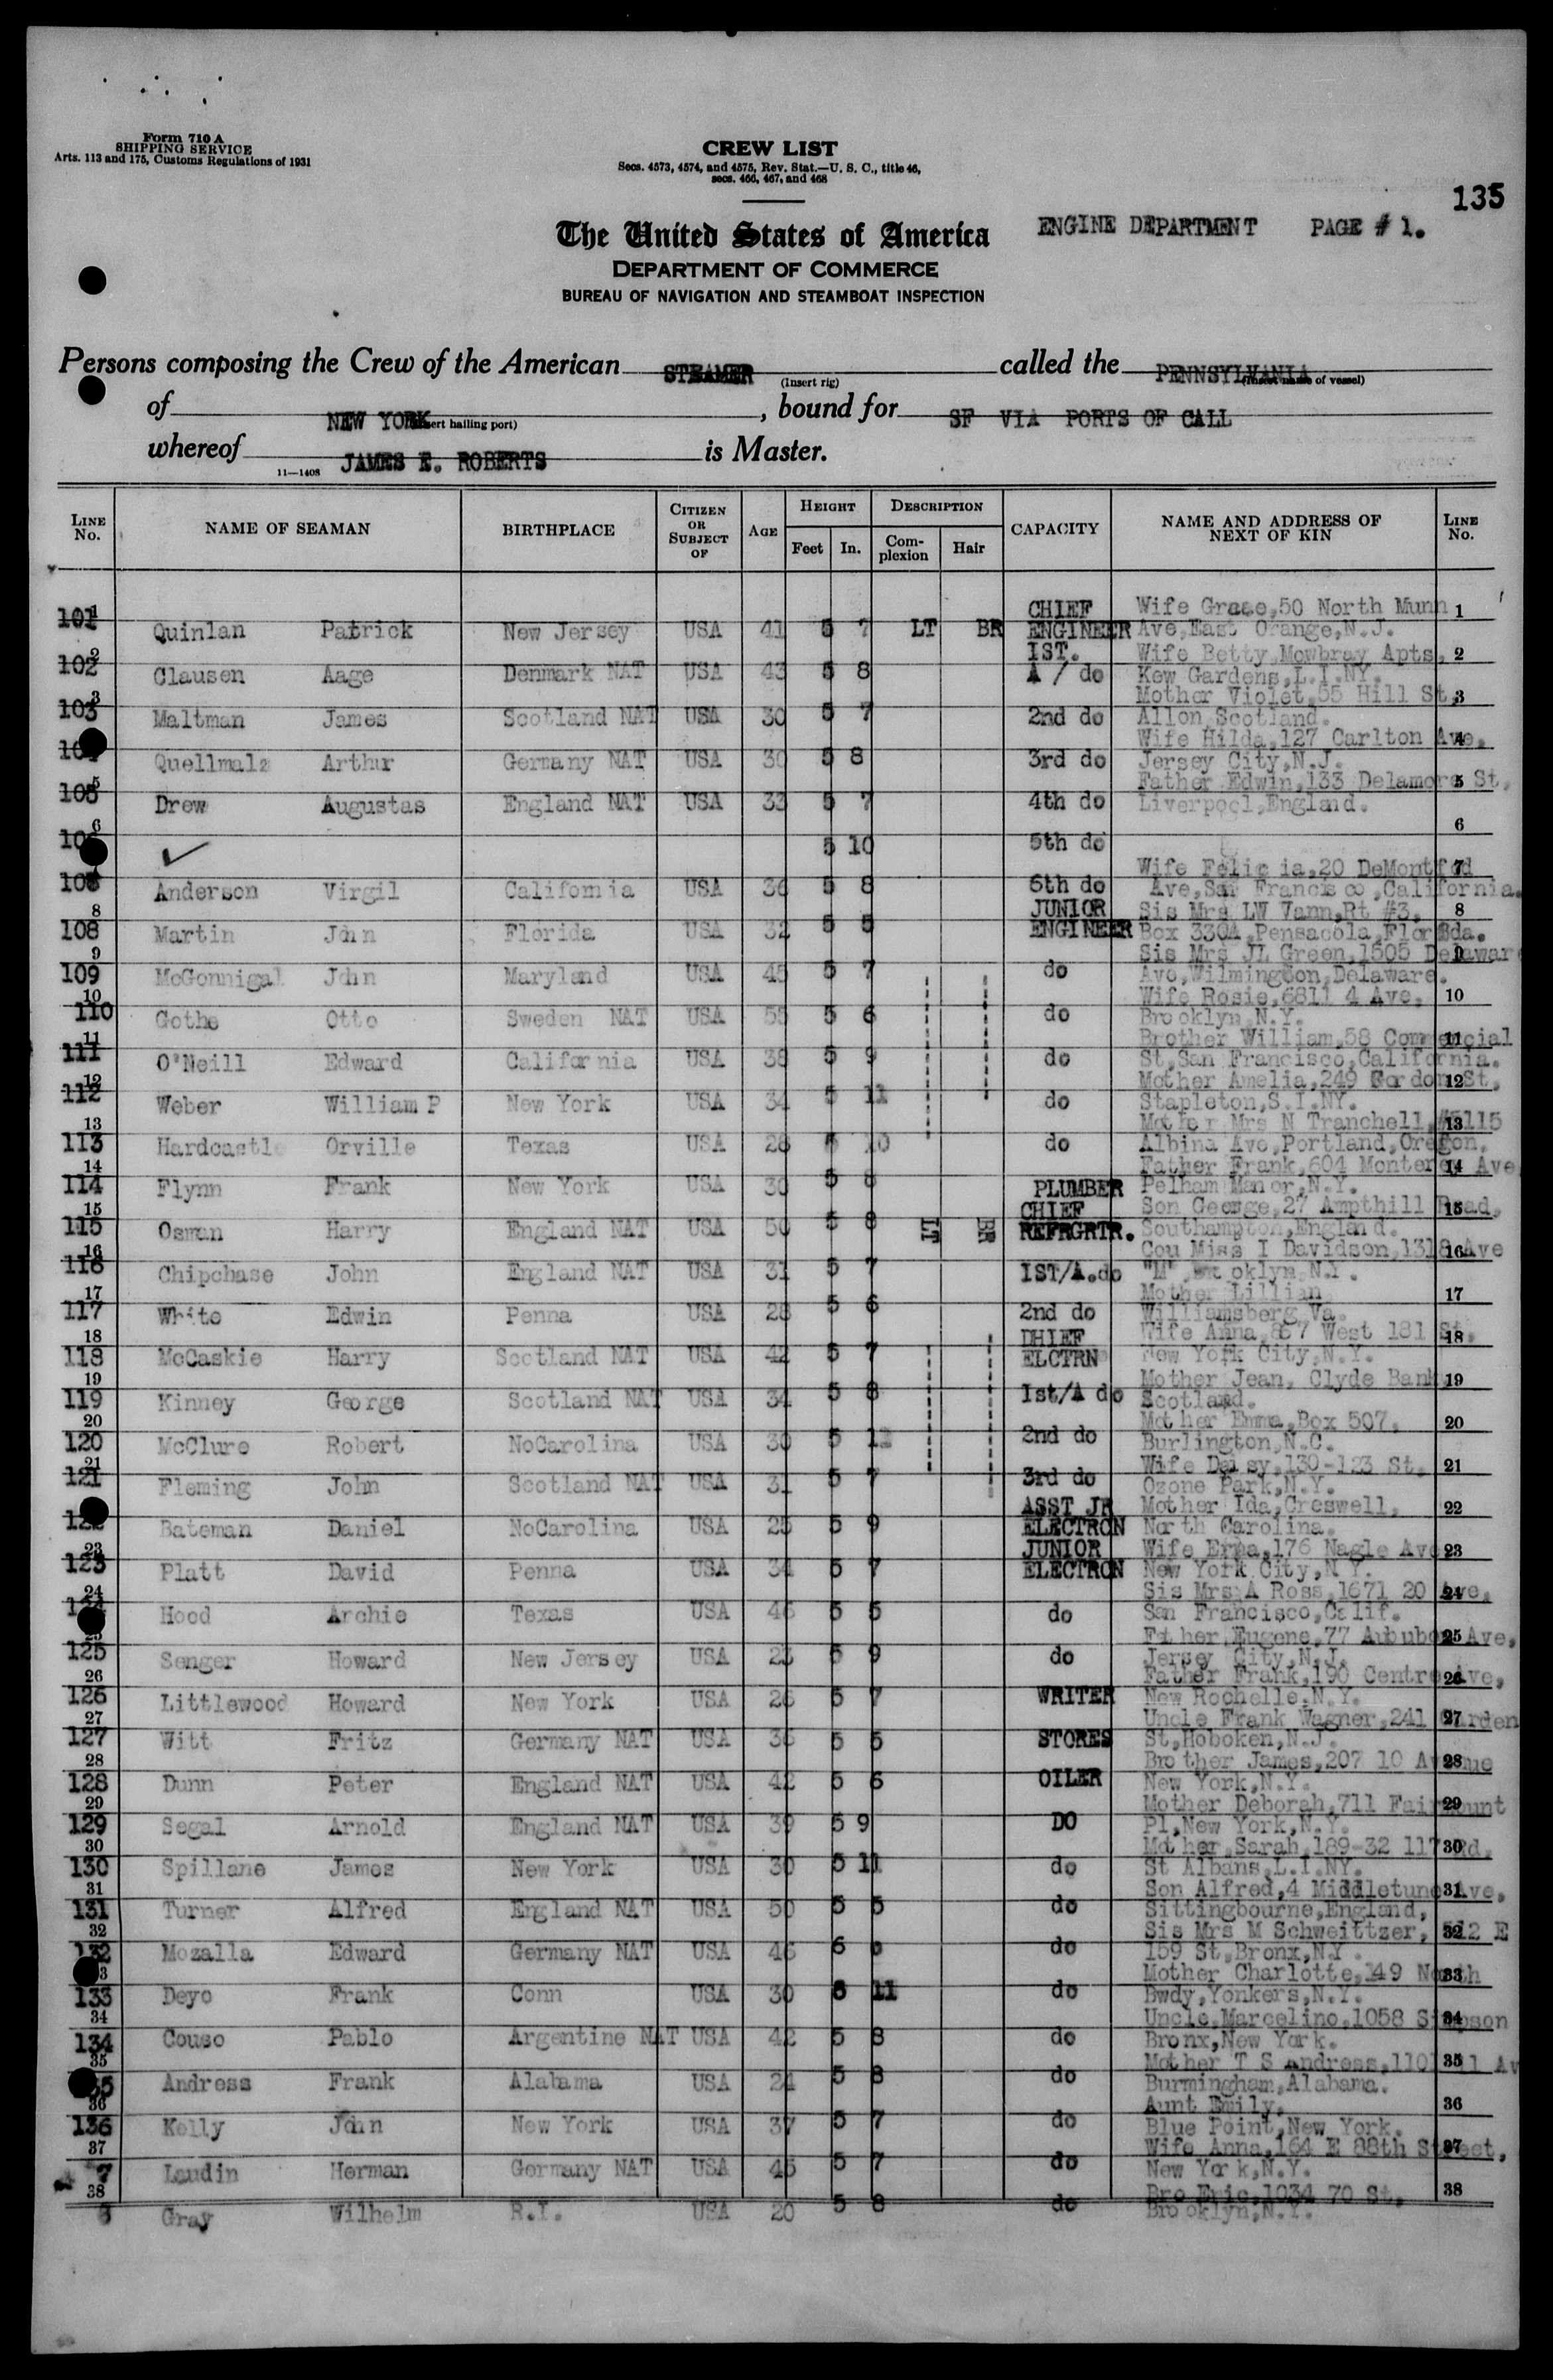 Form 710 A
SHIPPING SERVICE
Arts. 113 and 175, Customs Regulations of 1931
CREW LIST
Secs. 4573, 4574, and 4575, Rev. Stat.—U. S. C., title 46,
secs. 466, 467, and 468
135
The United States of America
ENGINE DEPARTMENT PAGE # 1.
DEPARTMENT OF COMMERCE
BUREAU OF NAVIGATION AND STEAMBOAT INSPECTION
Persons composing the Crew of the American STEAMER called the PENNSYLVANIA
(Insert rig) (Insert name of vessel)
of NEW YORK, bound for SF VIA PORTS OF CALL
(Insert hailing port)
whereof JAMES E. ROBERTS is Master.
11—1408
LINE No. NAME OF SEAMAN BIRTHPLACE CITIZEN OR SUBJECT OF AGE HEIGHT Feet In. DESCRIPTION Complexion Hair CAPACITY NAME AND ADDRESS OF NEXT OF KIN LINE No.
CHIEF Wife Grace,50 North Munn 1
101 Quinlan Patrick New Jersey USA 41 5 7 LT BR ENGINEER Ave,East Orange,N.J.
IST. Wife Betty,Mowbray Apts, 2
102 Clausen Aage Denmark NAT USA 43 5 8 A / do Kew Gardens,L.I.NY.
Mother Violet,55 Hill St, 3
103 Maltman James Scotland NAT USA 30 5 7 2nd do Allon,Scotland.
Wife Hilda,127 Carlton Ave, 4
Quellmalz Arthur Germany NAT USA 30 5 8 3rd do Jersey City,N.J.
Father Edwin,133 Delamore St, 5
105 Drew Augustas England NAT USA 33 5 7 4th do Liverpool,England.
6
✓ 5 10 5th do
Wife Felicia,20 DeMontfod 7
Anderson Virgil California USA 36 5 8 6th do Ave,San Francisco,California.
JUNIOR Sis Mrs LW Vann,Rt #3, 8
108 Martin John Florida USA 32 5 5 ENGINEER Box 330A,Pensacola,Florida.
Sis Mrs JL Green,1505 Delaware 9
109 McGonnigal John Maryland USA 45 5 7 do Ave,Wilmington,Delaware.
Wife Rosie,6811 4 Ave, 10
110 Gothe Otto Sweden NAT USA 55 5 6 do Brooklyn,N.Y.
Brother William,58 Commercial 11
111 O'Neill Edward California USA 38 5 9 do St,San Francisco,California.
Mother Amelia,249 Gordon St, 12
112 Weber William P New York USA 34 5 11 do Stapleton,S.I.NY.
Mother Mrs N Tranchell, 13
113 Hardcastle Orville Texas USA 28 5 10 do Albina Ave,Portland,Oregon.
Father Frank,604 Monterey Ave 14
114 Flynn Frank New York USA 30 5 8 PLUMBER Pelham Manor,N.Y.
CHIEF Son George,27 Ampthill Road, 15
115 Osman Harry England NAT USA 50 5 8 LT BR REFRGRTR. Southampton,England.
Cou Miss I Davidson,1318 Ave 16
116 Chipchase John England NAT USA 31 5 7 IST/A.do "M" Brooklyn,N.Y.
Mother Lillian, 17
117 White Edwin Penna USA 28 5 6 2nd do Williamsberg,Va.
DHIEF Wife Anna,857 West 181 St, 18
118 McCaskie Harry Scotland NAT USA 42 5 7 ELCTRN New York City,N.Y.
Mother Jean, Clyde Bank, 19
119 Kinney George Scotland NAT USA 34 5 8 Ist/A do Scotland.
Mother Emma,Box 507, 20
120 McClure Robert NoCarolina USA 30 5 2nd do Burlington,N.C.
Wife Daisy,130-123 St, 21
121 Fleming John Scotland NAT USA 31 5 7 3rd do Ozone Park,N.Y.
ASST JR Mother Ida,Creswell, 22
Bateman Daniel NoCarolina USA 25 5 9 ELECTRON North Carolina.
JUNIOR Wife Erma,176 Nagle Ave 23
123 Platt David Penna USA 34 5 7 ELECTRON New York City,N.Y.
Sis Mrs A Ross,1671 20 Ave, 24
Hood Archie Texas USA 46 5 5 do San Francisco,Calif.
Father Eugene,77 Ave, 25
125 Senger Howard New Jersey USA 23 5 9 do Jersey City,N.J.
Father Frank,190 Centre Ave, 26
126 Littlewood Howard New York USA 26 5 7 WRITER New Rochelle,N.Y.
Uncle Frank Wagner,241 Garden 27
127 Witt Fritz Germany NAT USA 36 5 5 STORES St,Hoboken,N.J.
Brother James,207 10 Avenue 28
128 Dunn Peter England NAT USA 42 5 6 OILER New York,N.Y.
Mother Deborah,711 Fairmount 29
129 Segal Arnold England NAT USA 39 5 9 DO Pl,New York,N.Y.
Mother Sarah,189-32 117 Rd, 30
130 Spillane James New York USA 30 5 11 do St Albans,L.I.NY.
Son Alfred,4 Middletune Ave, 31
131 Turner Alfred England NAT USA 50 5 5 do Sittingbourne,England,
Sis Mrs M Schweittzer, E 32
132 Mozalla Edward Germany NAT USA 46 6 do 159 St,Bronx,N.Y.
Mother Charlotte,149 North 33
133 Deyo Frank Conn USA 30 11 do Bwdy,Yonkers,N.Y.
Uncle,Marcelino,1058 Simpson 34
134 Couso Pablo Argentine NAT USA 42 5 8 do Bronx,New York.
Mother T S Andress, Av 35
Andress Frank Alabama USA 24 5 8 do Burmingham,Alabama.
Aunt Emily, 36
136 Kelly John New York USA 37 5 7 do Blue Point,New York.
Wife Anna,164 E 88th Street, 37
7 Laudin Herman Germany NAT USA 45 5 7 do New York,N.Y.
Bro Eric,1034 70 St, 38
Gray Wilhelm R.I. USA 20 5 8 do Brooklyn,N.Y.